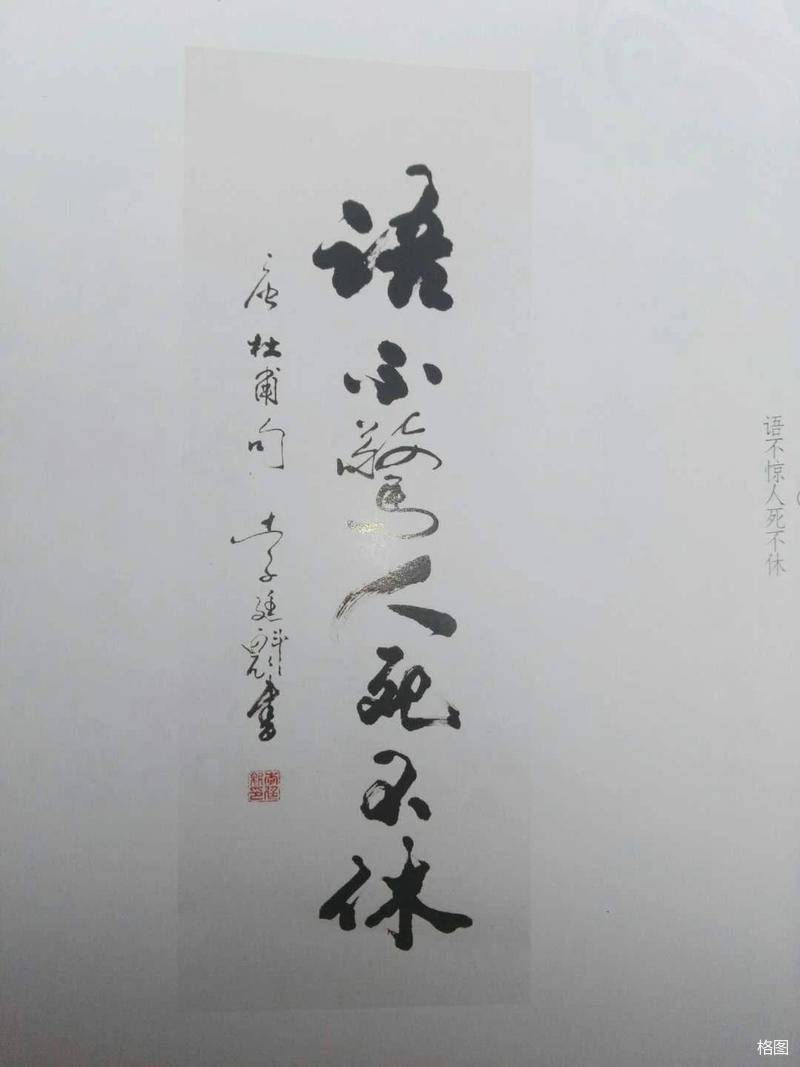 語不驚人死不休
唐杜甫句 李廷
書
语不惊人死不休
格图